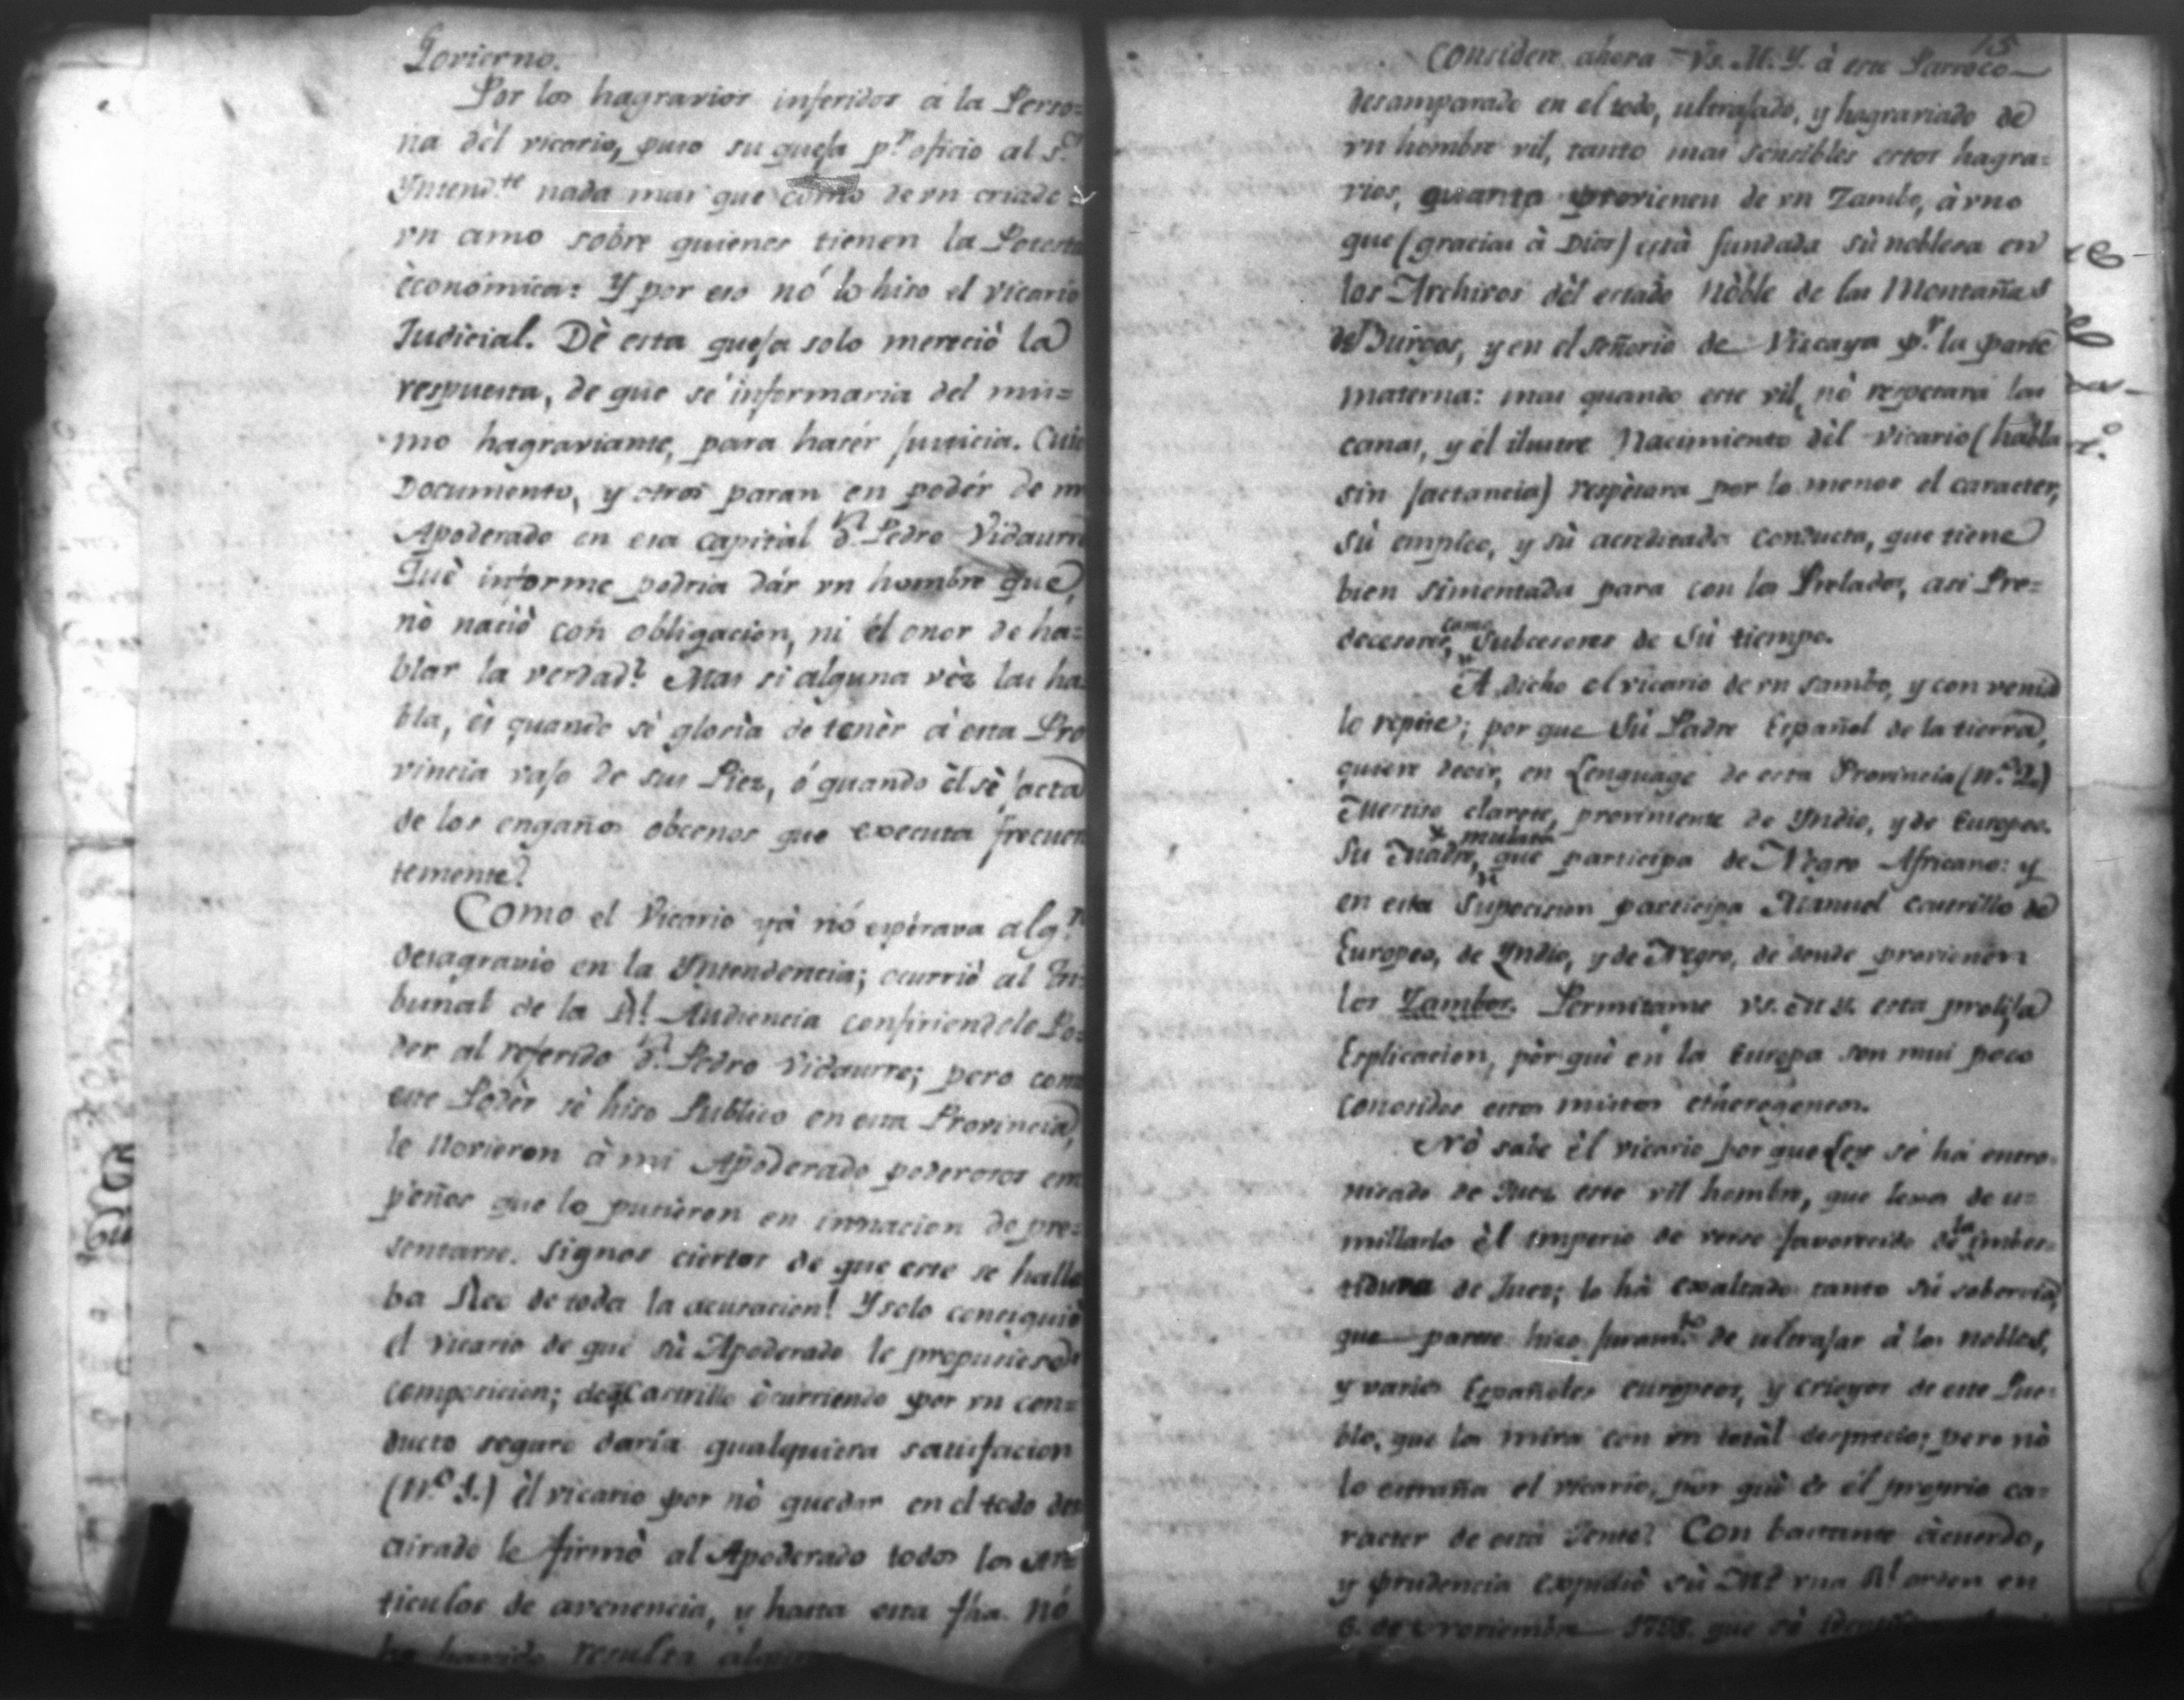 Govierno.
Por los hagravios inferidos á la Perso=
na dèl vicario, puso su quexa p.r oficio al S.or
Yntend.te nada mas que como de vn criado á
vn amo sobre quienes tienen la Potesta
èconómica: Y por eso nó lo hiso el vicario
Judicial. Dè esta quexa solo mereciò la
respuesta, de que sé informaria del mis=
mo hagraviante, para hacér justicia. Cuio
Documento, y otros paran en podér de mi
Apoderado en esa capitàl d.n Pedro Vidaurre
Què informe podria dár vn hombre que,
nò naciò con obligacion, ni èl onor de ha=
blar la verdad? Mas si alguna vèz las ha
bla, és quando sè gloría de tenèr á esta Pro
vincia vajo de sus Piez, ó quando èl sè jacta
de los engaños obcenos que executa frecuen
temente?
Como el Vicario yá nó esperava alg.n
desagravio en la Yntendencia; ocurrió al Tri=
bunal de la R.l Audiencia confiriendole Po=
der al referido d.n Pedro Vidaurre; pero como
este Podèr sè hiso Publico en esta Provincia,
le llovieron à mi Apoderado poderosos em
peños que lo pusieron en innacion de pre=
sentarse. Signos ciertos de que este se halla
ba Reo de toda la acusacion! Y solo consiguiò
el vicario de que sù Apoderado le propusiese
composicion; de q Castrillo òcurriendo por vn con=
ducto seguro daría qualquiera satisfacion
(N.o 1.) èl vicario por nò quedar en el todo des
airado le firmò al Apoderado todos los Ar=
ticulos de avenencia, y hasta esta fha. nó
ha havido resulta alguna
15
Considere ahora Vs. M. Y. à este Parroco
desamparado en el todo, ultrajado, y hagraviado de
vn hombre vil, tanto mas sensibles estos hagra=
vios, quanto provienen de vn Zambo, à vno
que (gracias à Dios) está fundada sù noblesa en
los Archivos dèl estado Nòble de las Montañas
de Burgos, y en el señorio de Viscaya p.r la parte
materna: mas quando este vil, nò respetara las
canas, y èl ilustre Nacimiento dèl Vicario (habla
sin jactancia) respètara por lo menos el caracter,
sù empleo, y sù acreditada conducta, que tiene
bien simentada para con los Prelados, asi Pre=
decesores, como Subcesores de Sù tiempo.
A dicho el vicario de vn sambo, y con venia
lo repite; por que Sù Padre Español de la tierra,
quiere decir, en Lenguage de esta Provincia (N.o 2.)
Mestiso clarete, proviniente de Yndio, y de Europeo.
Su Madre, mulata que participa de Negro Africano: y
en esta Suposicion participa Manuel Castrillo de
Europeo, de Yndio, y de Negro, de donde provienen
los Zambos. Permitame vs. M. Y. esta prolija
Esplicacion, pòr què en la Europa son mui poco
conosidos estos mistos etherogeneos.
Nò sabe èl vicario por que Ley sè há entro=
nizado de Juez este vil hombre, que lexos de u=
millarlo èl imperio de verse favorecido de la imbes=
tidura de Juez; lo hà exaltado tanto sú sobervia,
que parece hizo juram.to de ultrajar à los nobles,
y varios Españoles europeos, y crioyos de este Pue=
blo, que los mira con vn totàl desprecio; pero nò
lo estraña el vicario, pòr què ès él proprio ca=
racter de està Jente? Con bastante àcuerdo,
y prudencia expidiò sù M.d vna R.l orden en
6. de Noviembre 1788. que sè